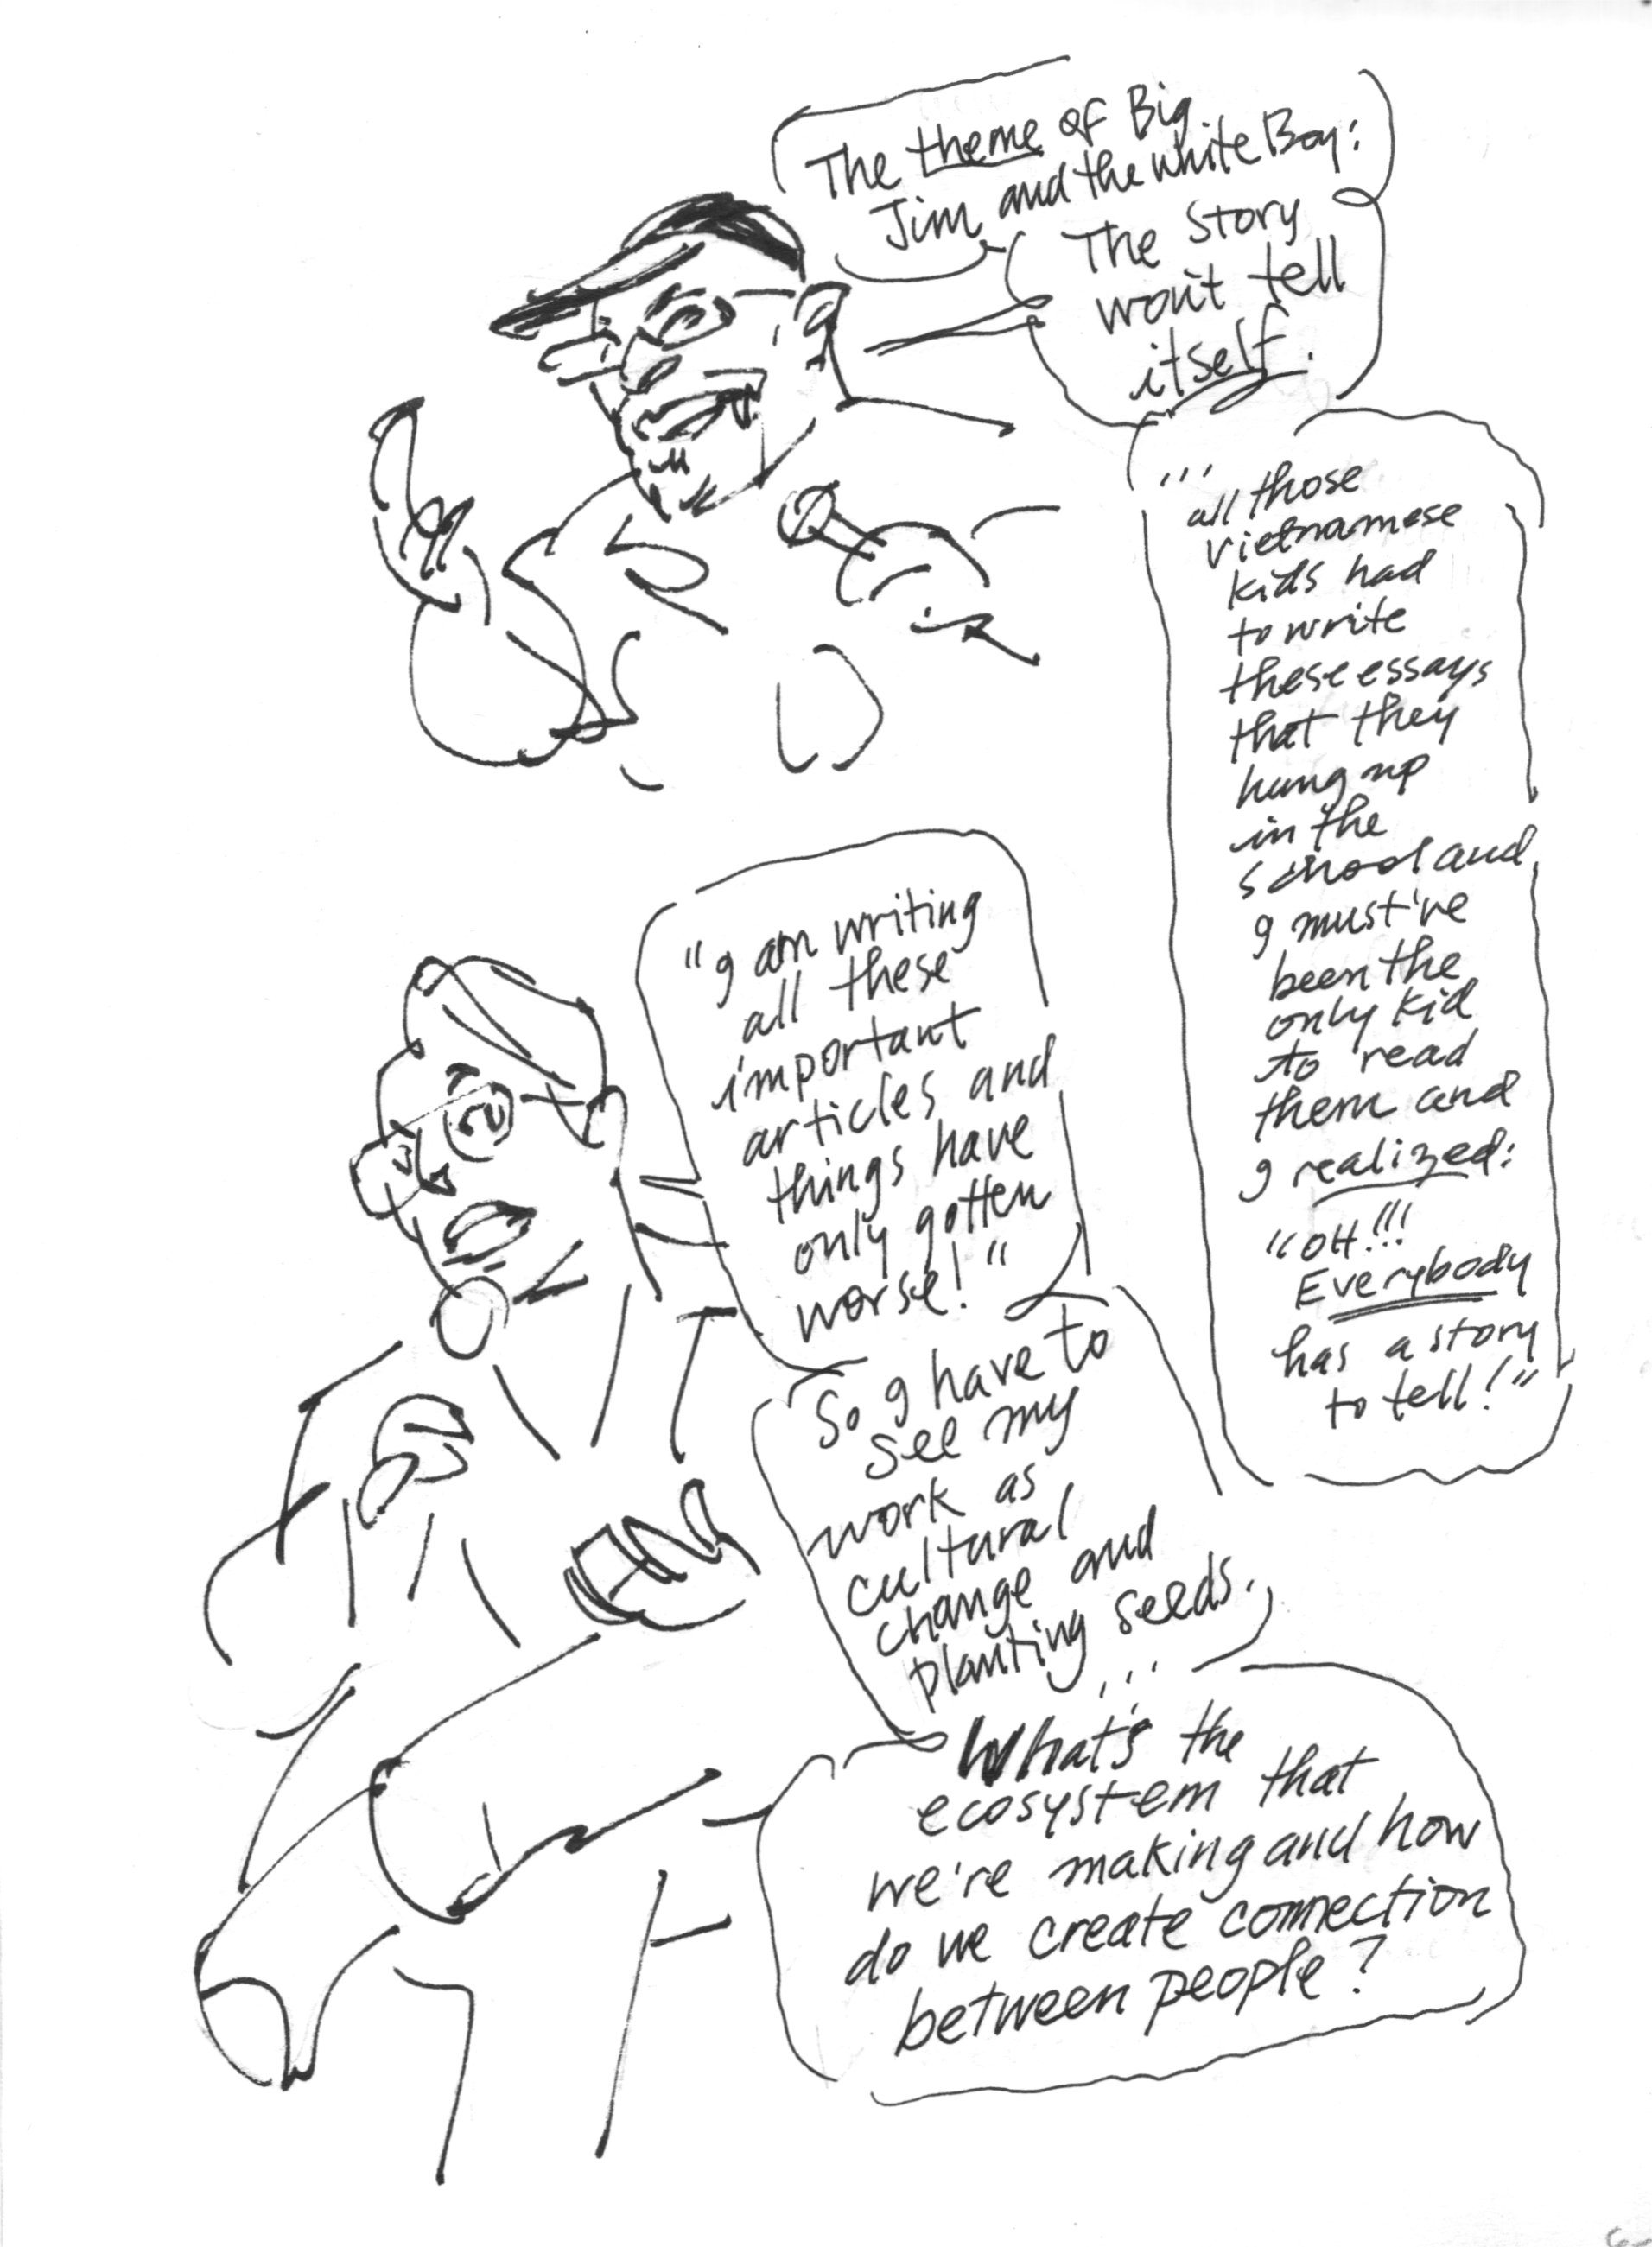 The theme of Big
Jim and the white Boy:
The story
won't tell
itself.
...
all those
vietnamese
kids had
to write
these essays
that they
hung up
in the
school and
I must've
been the
only kid
to read
them and
I realized:
"OH!!!
Everybody
has a story
to tell!"
"I am writing
all these
important
articles and
things have
only gotten
worse!"
So I have to
see my
work as
cultural
change and
planting seeds.
...
What's the
ecosystem that
we're making and how
do we create connection
between people?